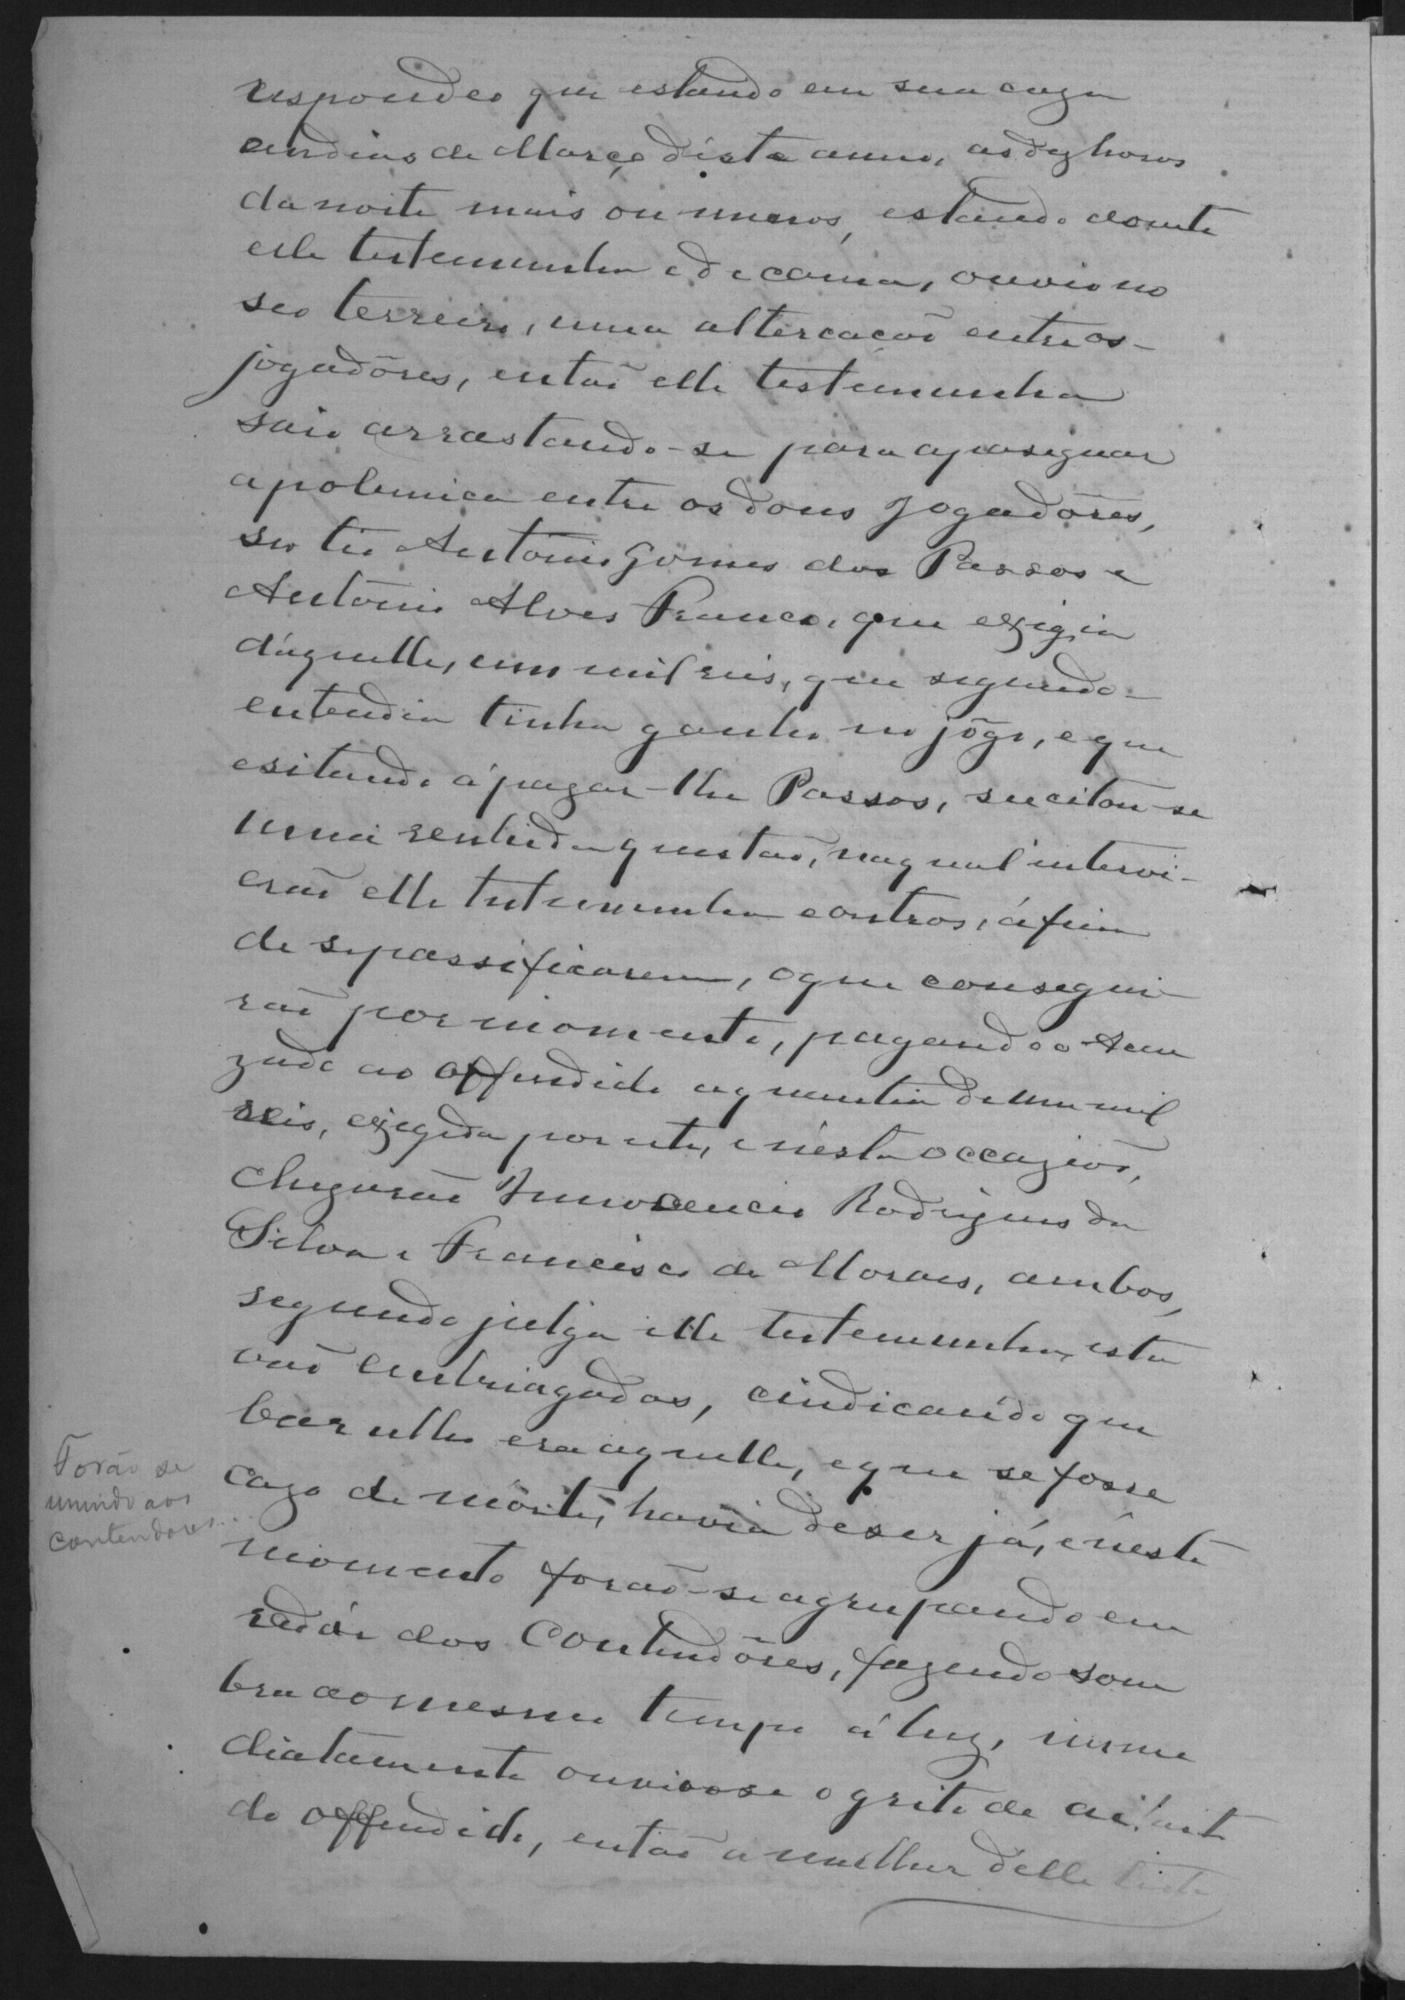 respondeo que estando em sua caza
em dias de Março d'este anno, as dez horas
da noite mais ou menos, estando doente
elle testemunha e de cama, ouvio no
seo terreiro, uma altercacaõ entre os
jogadôres, entaõ elle testemunha
saio arrastando-se para apasiguar
a polemica entre os dous jogadôres,
seo tio Antônio Gomes dos Passos e
Antônio Alves Franco, que exigia
d'aquelle, um mil reis, que segundo
entendia tinha ganho no jôgo, e que
exitando á pagar-lhe Passos, sucitou-se
uma renhida questaõ, na qual intervi-
eraõ elle testemunha e outros, á fim
de se passificarem, o que consegui
raõ por momento, pagando o Acu
zado ao offendido a quantia de um mil
reis, exegida por este, e n'esta occaziaõ,
chegaraõ Innocencio Rodrigues da
Silva e Francisco de Moraes, ambos,
segundo julga elle testemunha, esta
vaõ embriagados, e indicando que
barulho era aquelle, e que se fosse
cazo de mórte, havia de ser já, e n'este
momento foraõ-se agrupando em
redór dos contendôres, fazendo som
bra ao mesmo tempo á luz, imme
diatamente ouvio-se o grito de ai!
do offendido, entaõ a mulher d'elle
Forão se
unindo aos
contendores...